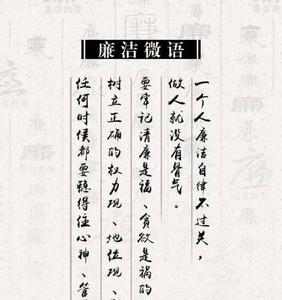 廉洁微语
一个人廉洁自律不过关，
做人就没有骨气。
要牢记清廉是福、贪欲是祸的
树立正确的权力观、地位观、
任何时候都要稳得住心神、管